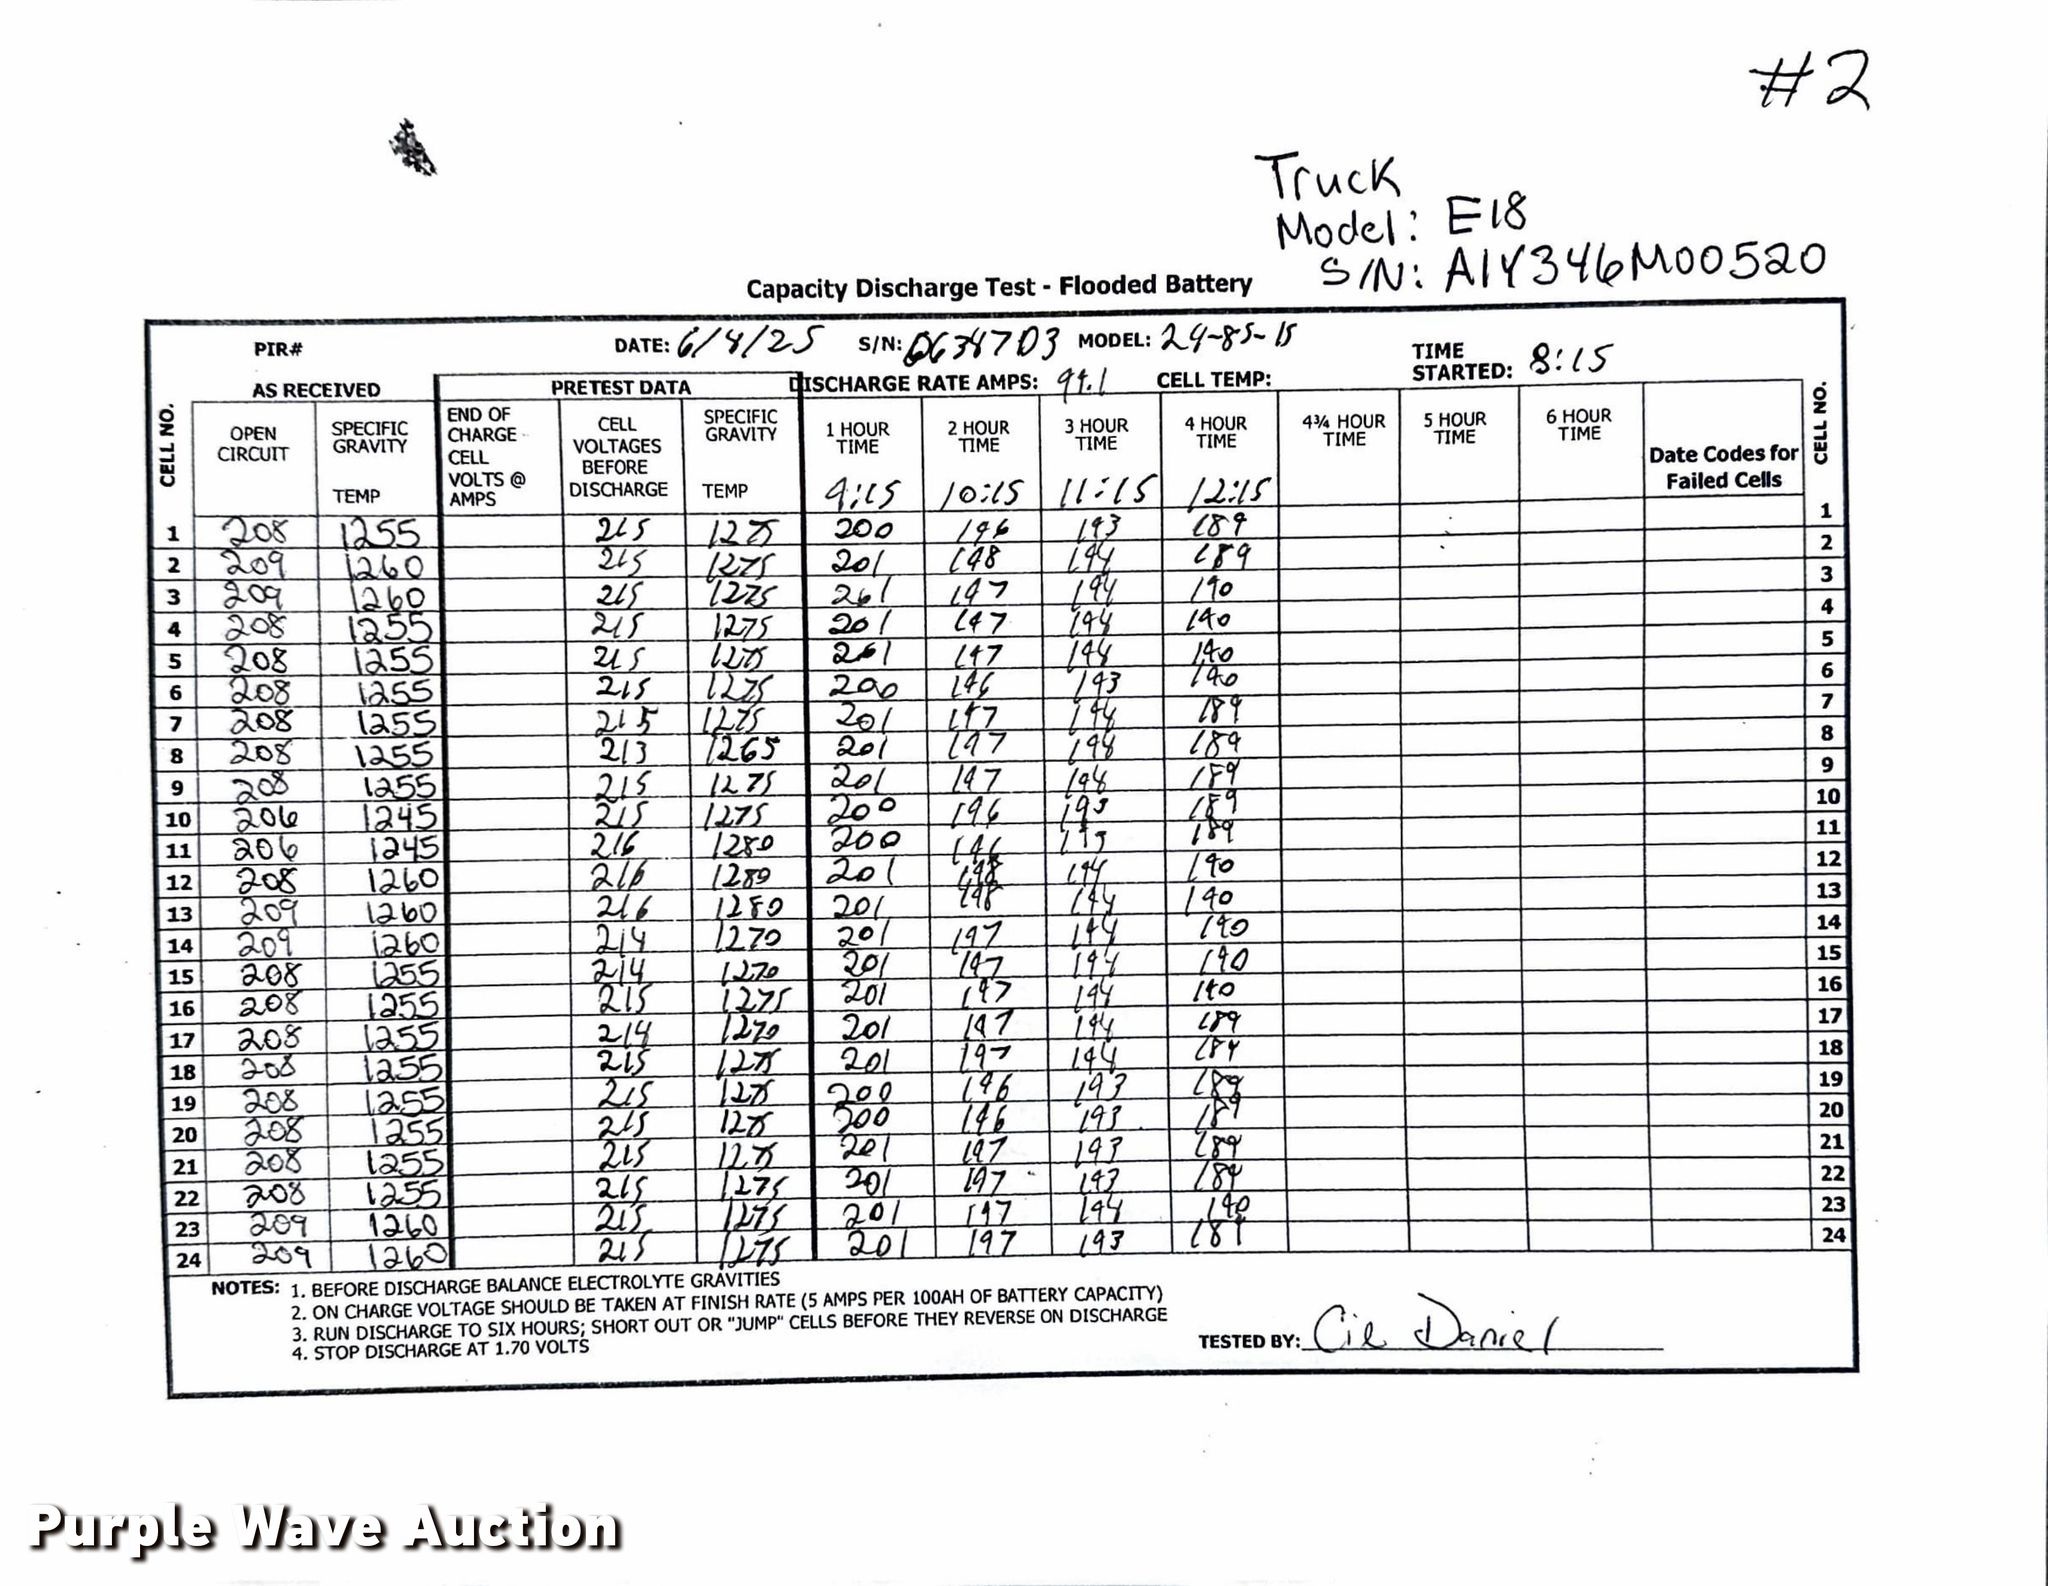 #2
Truck
Model: E18
S/N: A1Y346M00520
Capacity Discharge Test - Flooded Battery
PIR# DATE: 6/4/25 S/N: MODEL: 24-85-15 TIME STARTED: 8:15
AS RECEIVED PRETEST DATA DISCHARGE RATE AMPS: CELL TEMP:
CELL NO. OPEN CIRCUIT SPECIFIC GRAVITY TEMP END OF CHARGE CELL VOLTS @ AMPS CELL VOLTAGES BEFORE DISCHARGE SPECIFIC GRAVITY TEMP 1 HOUR TIME 9:15 2 HOUR TIME 10:15 3 HOUR TIME 11:15 4 HOUR TIME 12:15 4¾ HOUR TIME 5 HOUR TIME 6 HOUR TIME Date Codes for Failed Cells CELL NO.
1 208 1255 215 1275 200 196 193 189 1
2 209 1260 215 1275 201 198 194 189 2
3 209 1260 215 1275 201 197 194 190 3
4 208 1255 215 1275 201 197 194 190 4
5 208 1255 215 1275 201 197 194 190 5
6 208 1255 215 1275 200 196 193 190 6
7 208 1255 215 1275 201 197 194 189 7
8 208 1255 213 1265 201 197 194 189 8
9 208 1255 215 1275 201 197 194 189 9
10 206 1245 215 1275 200 196 193 189 10
11 206 1245 216 1280 200 196 193 189 11
12 208 1260 216 1280 201 198 194 190 12
13 209 1260 216 1280 201 198 194 190 13
14 209 1260 214 1270 201 197 194 190 14
15 208 1255 214 1270 201 197 194 190 15
16 208 1255 215 1275 201 197 194 190 16
17 208 1255 214 1270 201 197 194 189 17
18 208 1255 215 1275 201 197 194 189 18
19 208 1255 215 1275 200 196 193 189 19
20 208 1255 215 1275 200 196 193 189 20
21 208 1255 215 1275 201 197 193 189 21
22 208 1255 215 1275 201 197 193 189 22
23 209 1260 215 1275 201 197 194 190 23
24 209 1260 215 1275 201 197 193 189 24
NOTES: 1. BEFORE DISCHARGE BALANCE ELECTROLYTE GRAVITIES
2. ON CHARGE VOLTAGE SHOULD BE TAKEN AT FINISH RATE (5 AMPS PER 100AH OF BATTERY CAPACITY)
3. RUN DISCHARGE TO SIX HOURS; SHORT OUT OR "JUMP" CELLS BEFORE THEY REVERSE ON DISCHARGE
4. STOP DISCHARGE AT 1.70 VOLTS
TESTED BY: Daniel
Purple Wave Auction